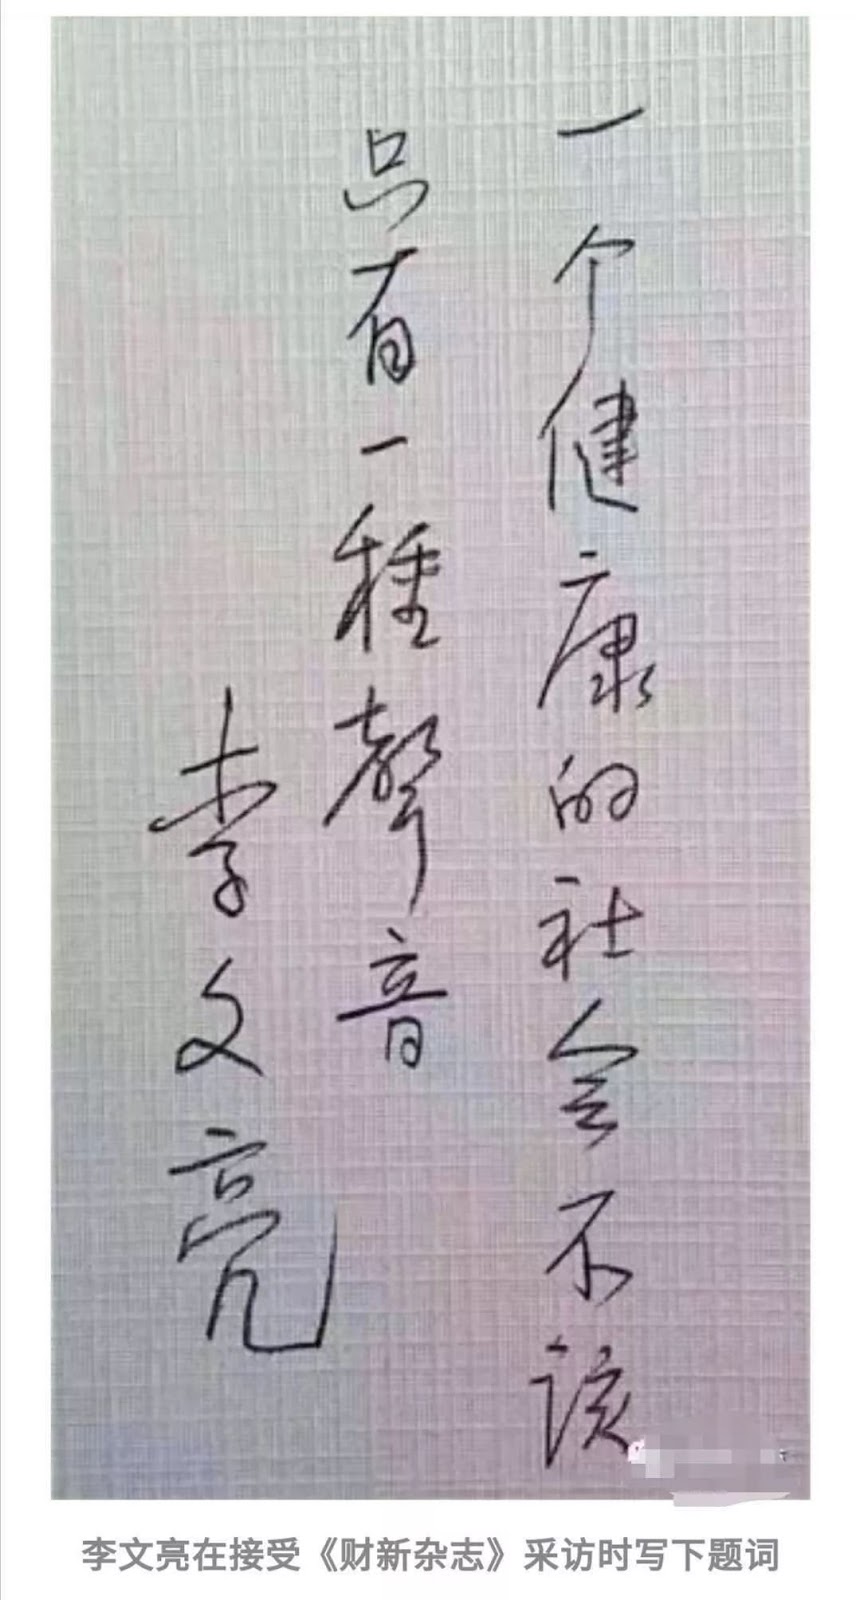 一个健康的社会不该
只有一種聲音
李文亮
李文亮在接受《财新杂志》采访时写下题词